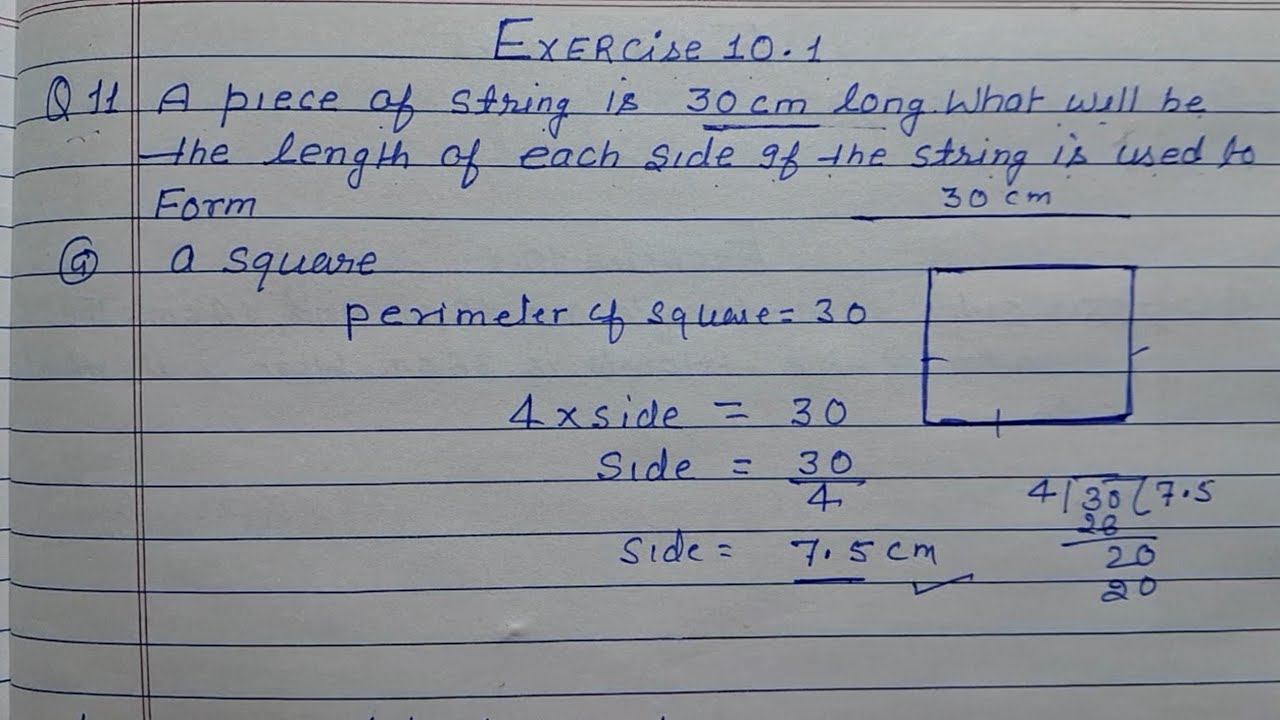 Exercise 10.1
Q 11 A piece of string is 30 cm long. What will be
the length of each side if the string is used to
Form
30 cm
(a) a square
perimeter of square = 30
4 x side = 30
side = 30/4
4)30(7.5
28
20
20
side = 7.5 cm